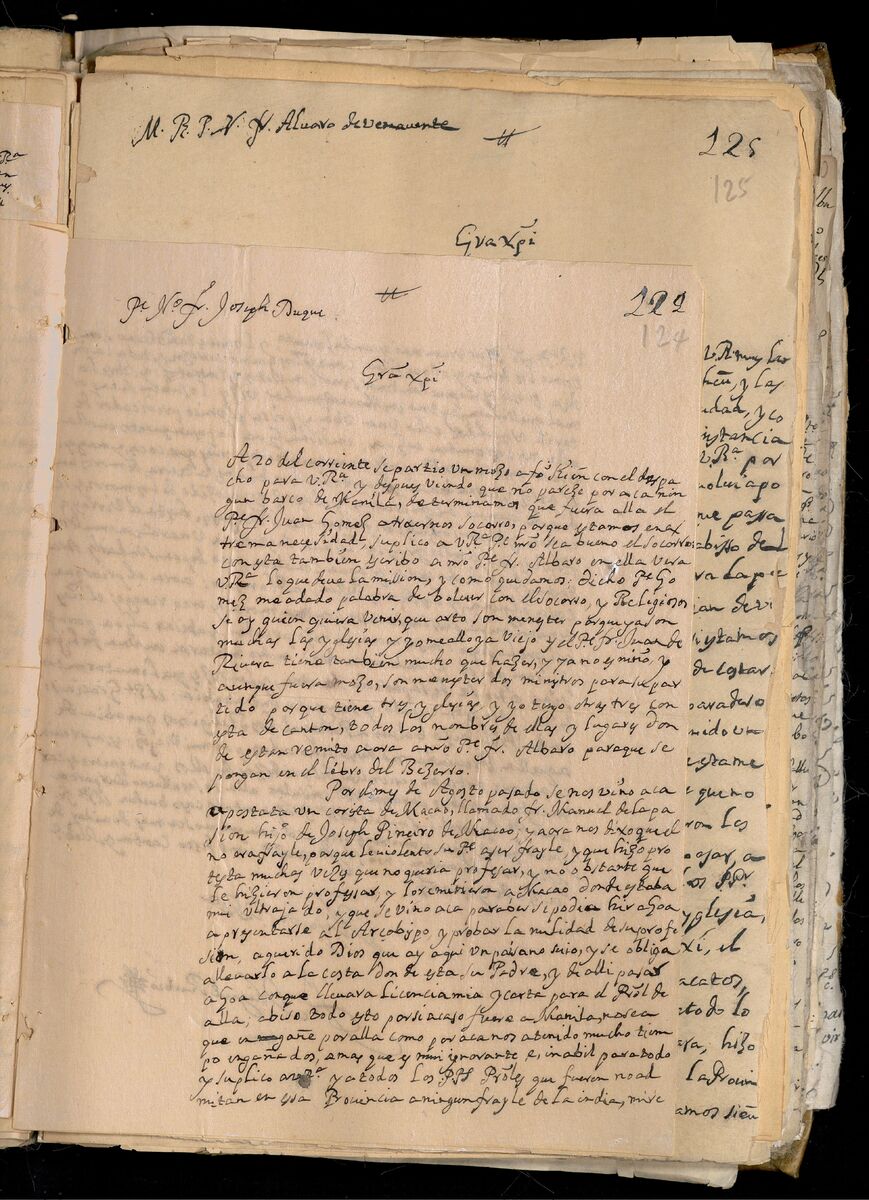 M. R. P. N. fr. Alvaro de venavente
125
125
Gr̃a Xp̃i
Pe. No. fr. Joseph Duque
122
124
Gr̃a Xp̃i
A 20 del corriente se partio un mozo a fo Kien con el despa
cho para V. Ra. y despues viendo que no pareze por aca nin
gun barco de Manila, determinamos que fuera alla el
Pe. fr. Juan Gomez a traernos socorro, porque estamos en ex
trema necesidad, suplico a V. Ra. Pe. nro sea bueno el socorro
con esta tambien escribo a nro Pe. fr. Albaro en ella vera
V. Ra. lo que deve la mission, y como quedamos: dicho Pe. Go
mez me a dado palabra de bolver con el socorro, y Religiosos
se oy quien quiera venir, que arto son menester porque ya son
muchas las yglesias y yo me allo ya viejo y el Pe. fr. Juan de
Rivera tiene tambien mucho que hazer, y ya no es niño, y
aunque fuera mozo, son menester dos ministros para su par
tido porque tiene tres yglesias y yo tengo otras tres con
esta de canton, todos los nombres de ellas y lugares don
de estan remito aora a nro Pe. fr. Albaro para que se
pongan en el Libro del Bezerro.
Por el mes de Agosto pasado, se nos vino aca
apostata un corista de Macao, llamado fr. Manuel de la pa
sion hijo de Joseph Pineiro de Macao; y aora nos dixo que el
no era frayle, porque le violento su Pe. a ser frayle, y que hizo pro
testa muchas vezes que no queria profesar, y no obstante que
le hizieron profesar, y lo remitieron a Macao donde estaba
mui ultrajado, y que se vino aca para ber si podia hir a Goa
a presentarse al Arcobispo, y probar la nulidad de su profe
sion, a querido Dios que ay aqui un paisano suio, y se obliga
a llevarlo a la costa donde esta su Padre, y de alli pasar
a Goa conque llevara Licencia mia y carta para el Pro̅l de
alla; abiso todo esto por si acaso fuere a Manila, no sea
que engañe por alla como por aca nos a tenido mucho tiem
po engañados, a mas que es mui ignorante e, inabil para todo
y suplico a V. Ra. y a todos los PP Pro̅les que fueren no ad
mitan en esa Provincia a ningun frayle de la india, mire